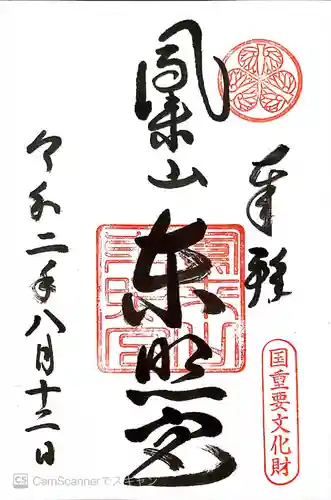 奉拝
国重要文化財
鳳来山
東照宮
令和二年八月十二日
CS CamScannerでスキャン